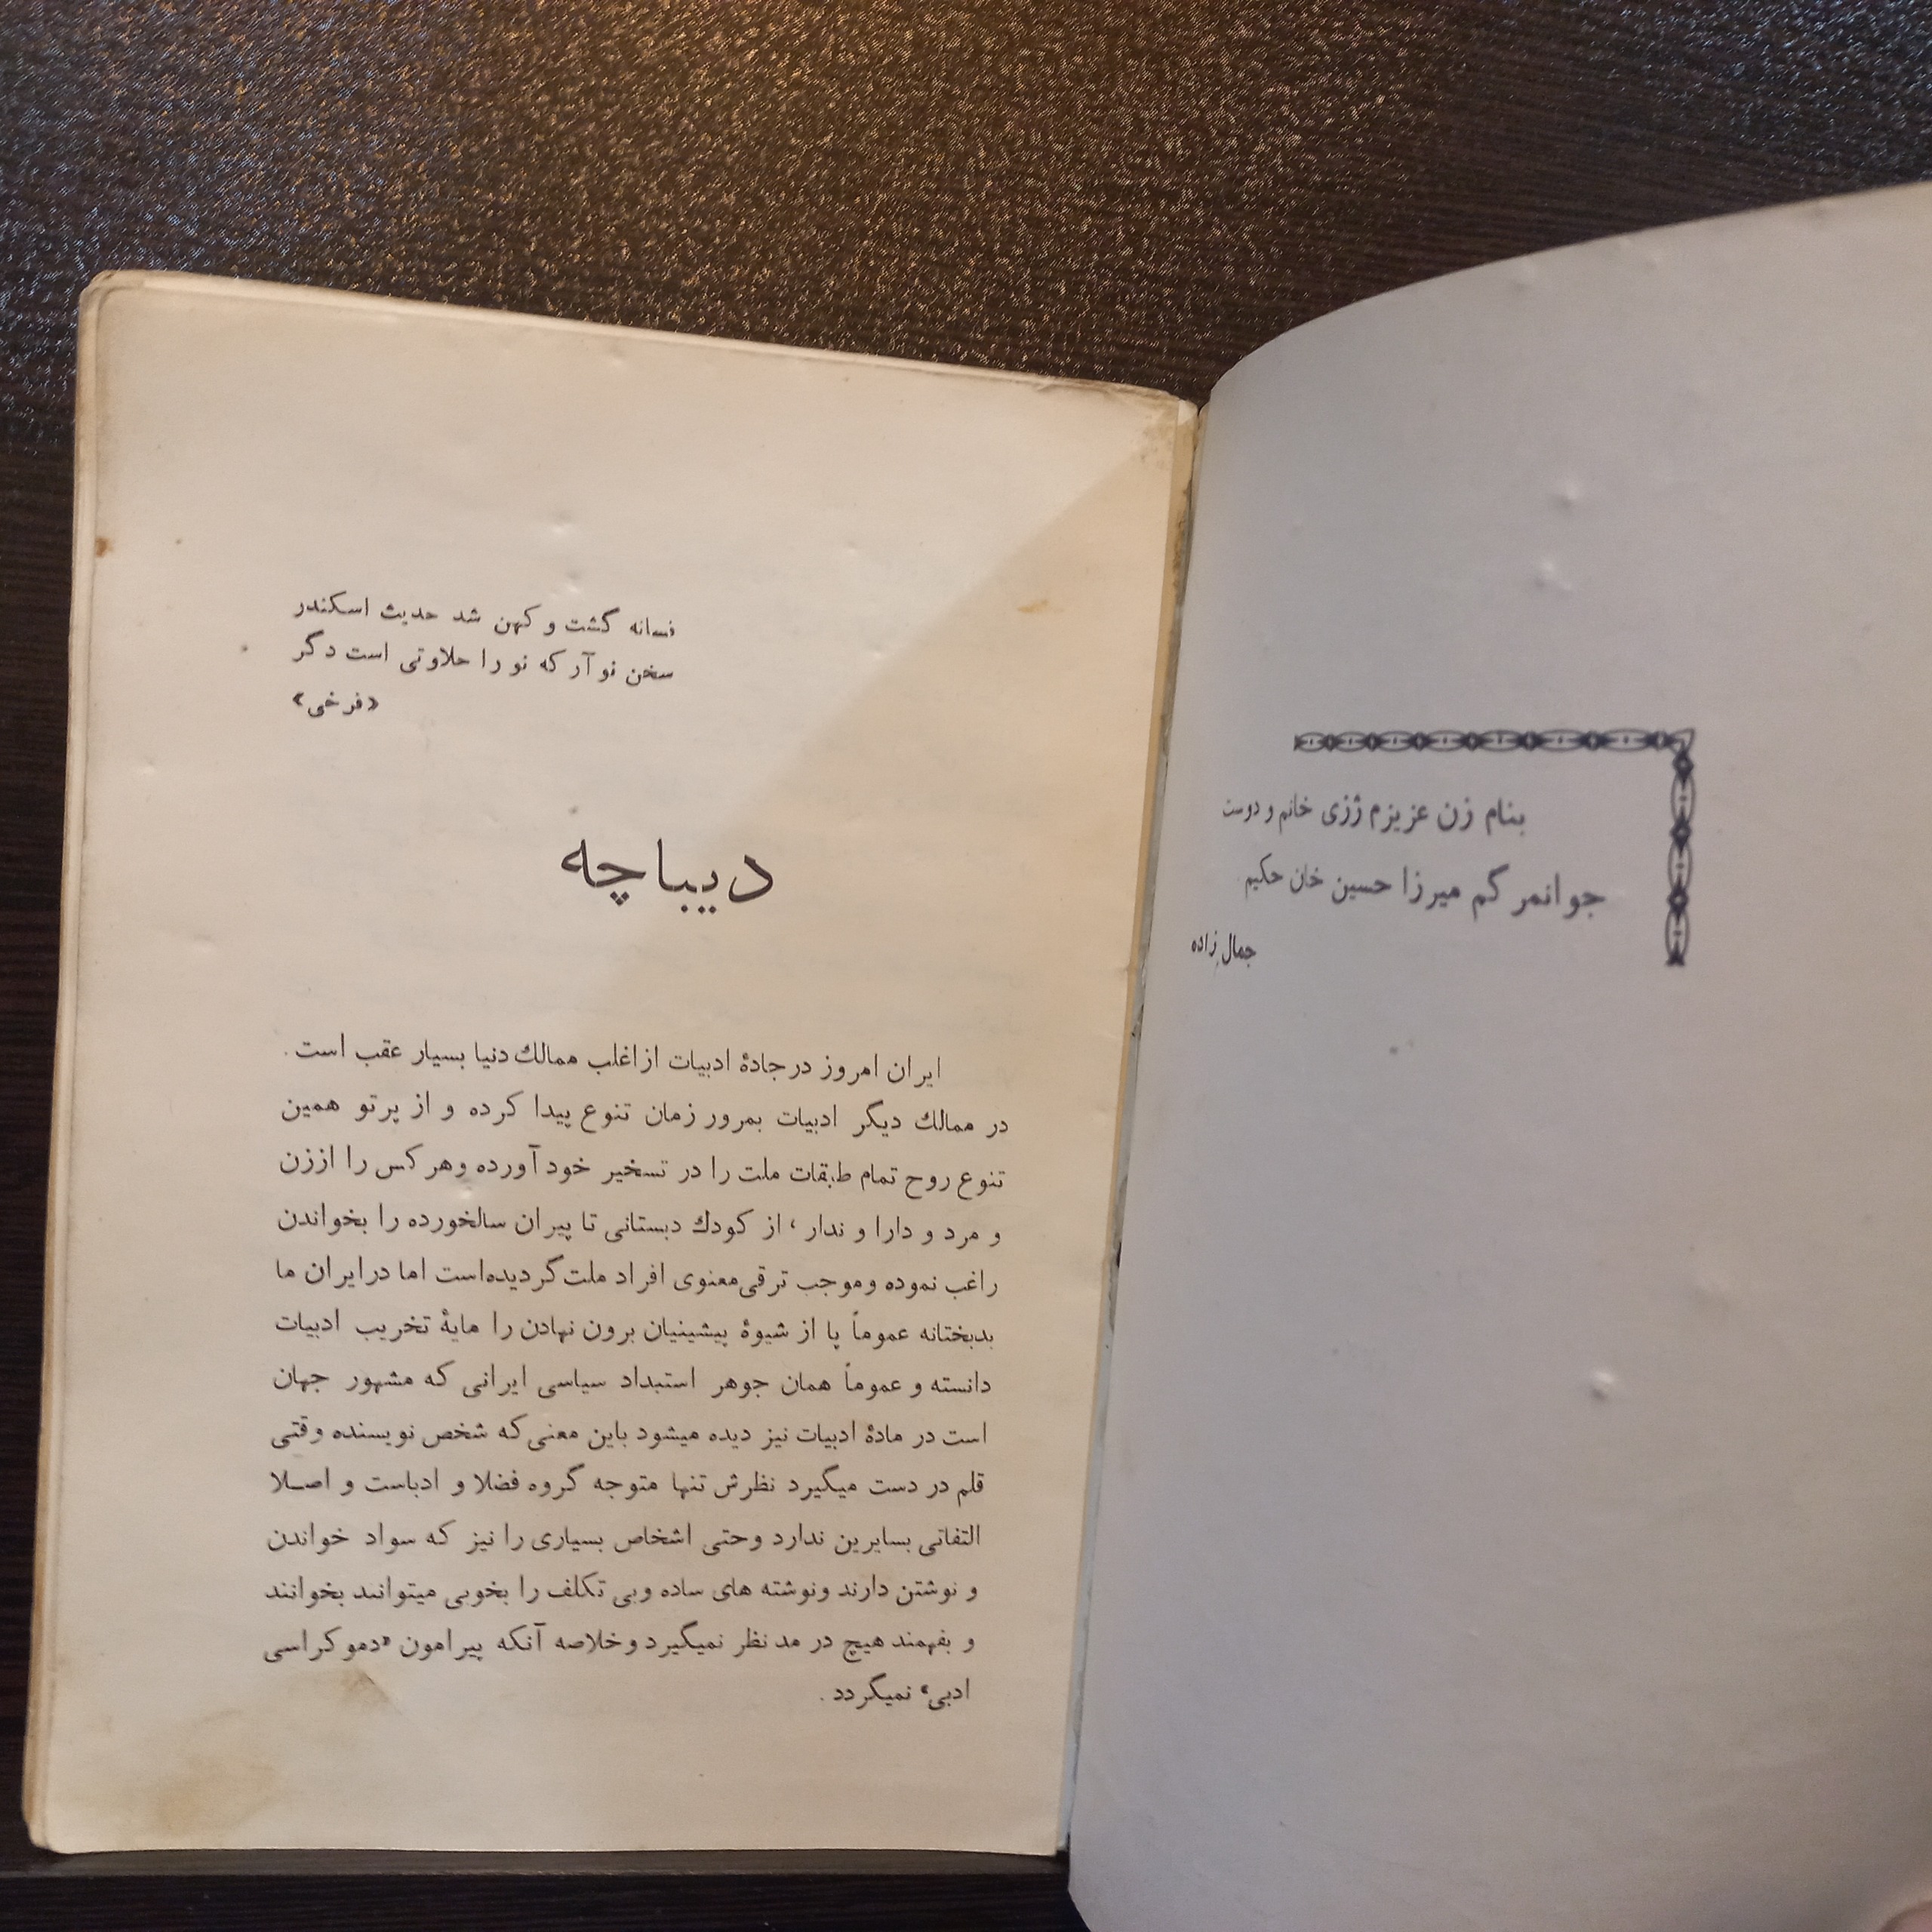 بنام زن عزیزم ژزی خانم و دوست
جوانمرگم میرزا حسین خان حکیم
جمال‌زاده
فسانه گشت و کهن شد حدیث اسکندر
سخن نو آر که نو را حلاوتی است دگر
«فرخی»
دیباچه
ایران امروز در جادهٔ ادبیات از اغلب ممالك دنیا بسیار عقب است.
در ممالك دیگر ادبیات بمرور زمان تنوع پیدا کرده و از پرتو همین
تنوع روح تمام طبقات ملت را در تسخیر خود آورده و هر کس را از زن
و مرد و دارا و ندار، از کودك دبستانی تا پیران سالخورده را بخواندن
راغب نموده و موجب ترقی معنوی افراد ملت گردیده است اما در ایران ما
بدبختانه عموماً پا از شیوهٔ پیشینیان برون نهادن را مایهٔ تخریب ادبیات
دانسته و عموماً همان جوهر استبداد سیاسی ایرانی که مشهور جهان
است در مادهٔ ادبیات نیز دیده میشود باین معنی که شخص نویسنده وقتی
قلم در دست میگیرد نظرش تنها متوجه گروه فضلا و ادباست و اصلا
التفاتی بسایرین ندارد و حتی اشخاص بسیاری را نیز که سواد خواندن
و نوشتن دارند و نوشته های ساده و بی تکلف را بخوبی میتوانند بخوانند
و بفهمند هیچ در مد نظر نمیگیرد و خلاصه آنکه پیرامون «دموکراسی
ادبی» نمیگردد.